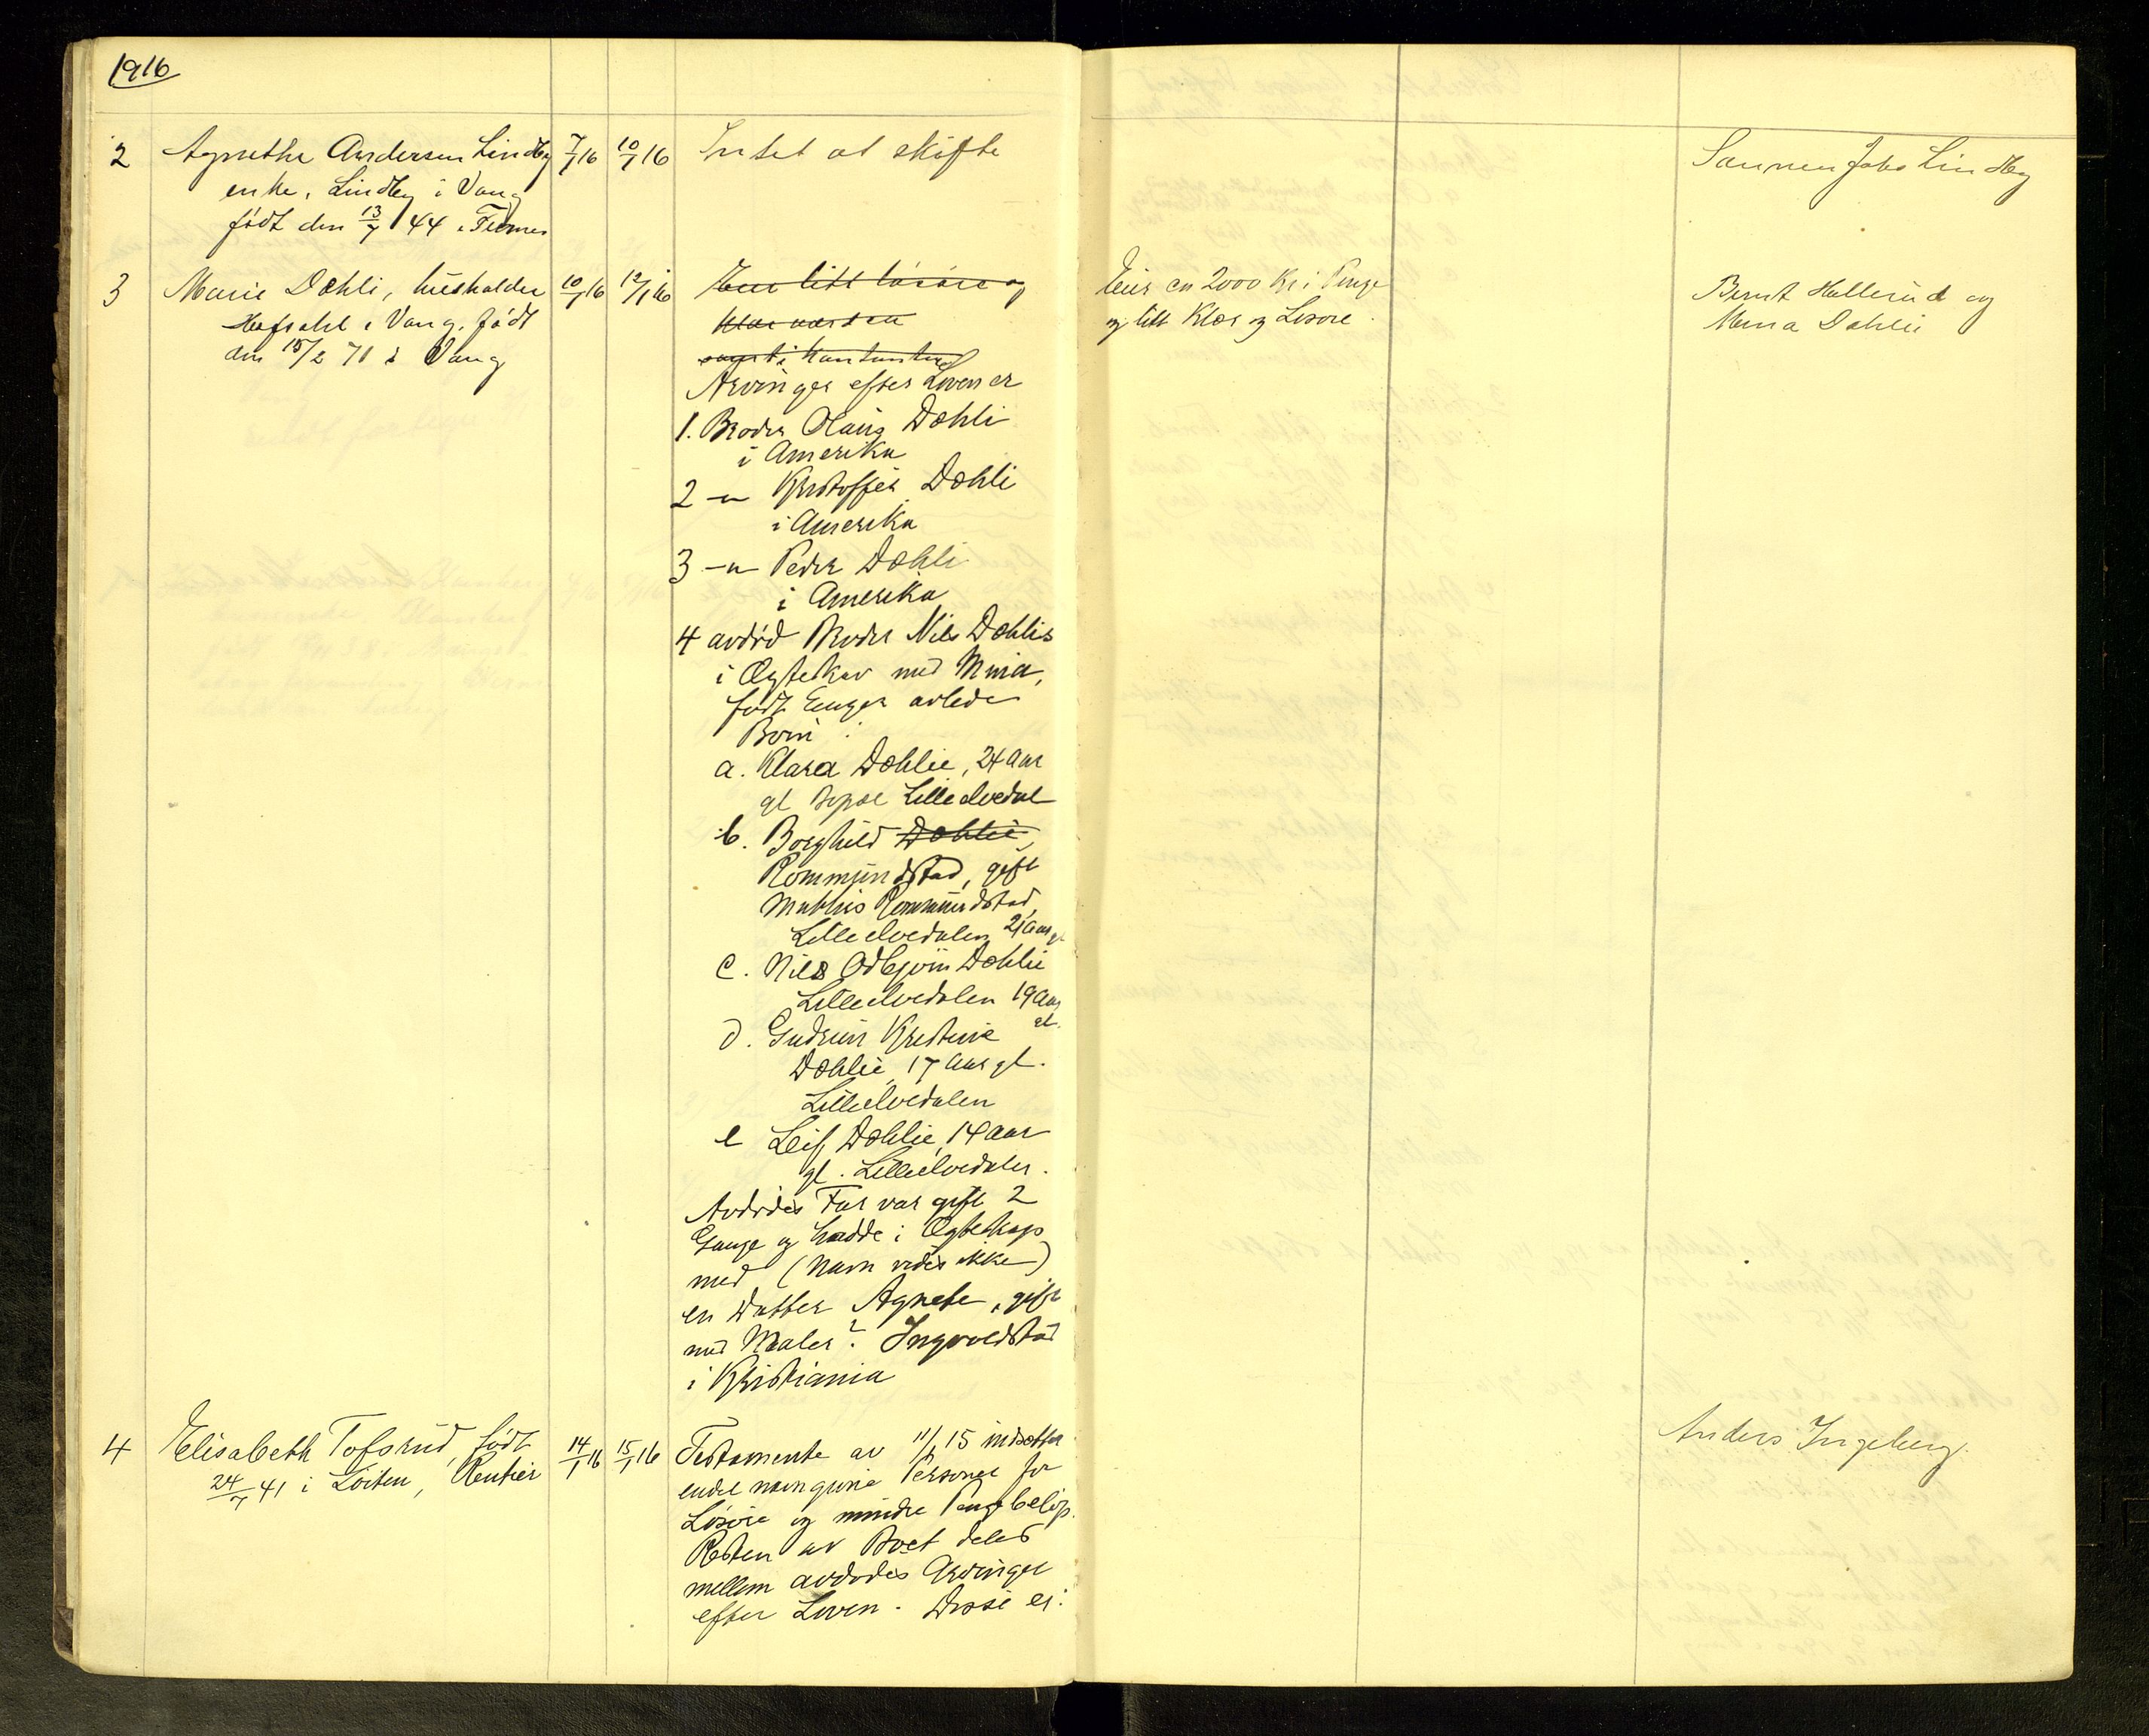 1916
2 Agnethe Andersen Lindby 7/1 16 10/1 16 Intet at skifte
enke, Lindby i Vang
født den 13/7 44 i Furnes
Sønnen Johs Lindby
3 Marie Dæhli, husholder 10/1 16 12/1 16
i Vang. født
den 15/2 71 i Vang
Eier ca 2000 Kr i Penge
og litt Klær og Løsøre.
Bernt Hallerud og
Mina Dæhlie
Eier litt løsøre og
Arvinger efter Loven er
1. Broder Olaus Dæhli
i Amerika
2 -"- Kristoffer Dæhli
i Amerika
3 -"- Peder Dæhli
i Amerika
4 avdød Broder Nils Dæhlis
i Ægteskav med Mina,
født Enger avlede
Børn:
a. Klara Dæhlie, 24 Aar
gl Lilleelvedal
b. Borghild Dæhlie,
Rommundstad, gift
Mathis Rommundstad,
Lilleelvedalen 21 Aar gl
c. Nils Odbjørn Dæhlie
Lilleelvedalen 19 Aar
gl.
d. Gudrun Kristine
Dæhlie, 17 Aar gl.
Lilleelvedalen
e Leif Dæhlie, 14 Aar
gl. Lilleelvedalen.
Avdødes Far var gift 2
Gange og hadde i Ægteskap
med (Navn vides ikke)
en Datter Agnete, gift
med Maler? Ingvoldstad
i Kristiania
4 Elisabeth Tofsrud, født 14/1 16 15/1 16
24/7 41 i Løiten, Rentier
Testamente av 11/6 15 indsætter
endel navngivne Personer for
Løsøre og mindre Pengebeløp.
Resten av Boet deles
mellem avdødes Arvinger
efter Loven. Disse er:
Anders Ingeberg.